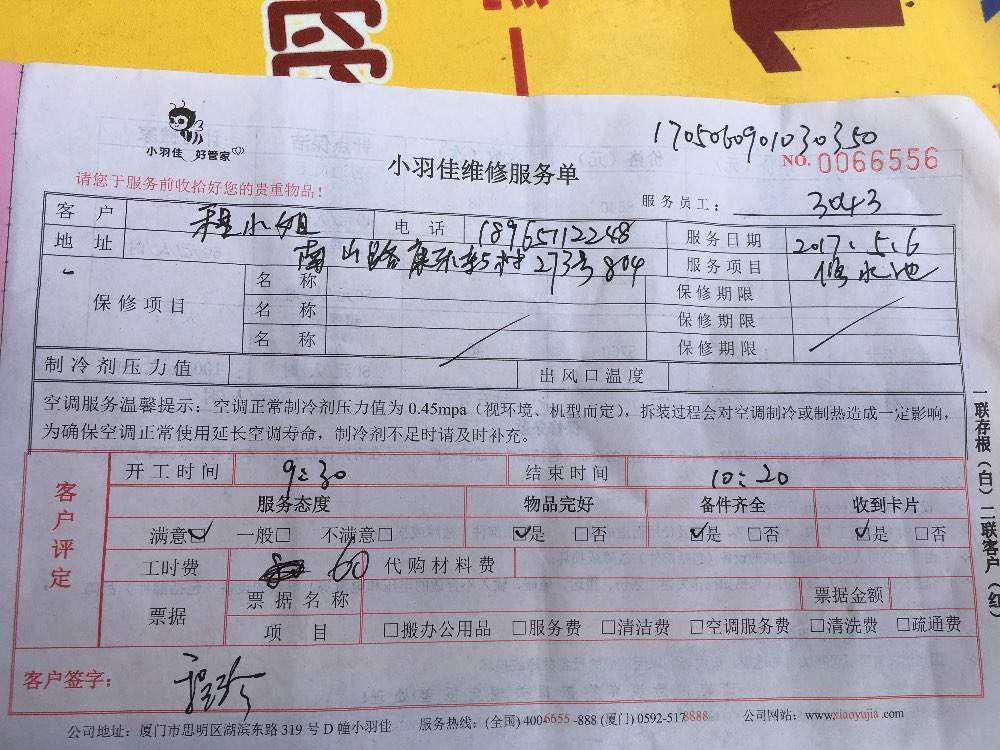 小羽佳 好管家
1705060901030350
小羽佳维修服务单
NO. 0066556
请您于服务前收拾好您的贵重物品！
服务员工： 3043
客户 程小姐 电话 18965712248 服务日期 2017.5.6
地址 南山路康乐新村273号804 服务项目 修水池
保修项目
名称 保修期限
名称 保修期限
名称 保修期限
制冷剂压力值 出风口温度
空调服务温馨提示：空调正常制冷剂压力值为 0.45mpa（视环境、机型而定），拆装过程会对空调制冷或制热造成一定影响，
为确保空调正常使用延长空调寿命，制冷剂不足时请及时补充。
一联存根（白）二联客户（红
客户评定
开工时间 9:30 结束时间 10:20
服务态度 物品完好 备件齐全 收到卡片
满意☑ 一般□ 不满意□ ☑是 □否 ☑是 □否 ☑是 □否
工时费 60 代购材料费
票据 票据名称 票据金额
项目 □搬办公用品 □服务费 □清洁费 □空调服务费 □清洗费 □疏通费
客户签字： 程珍
公司地址：厦门市思明区湖滨东路 319 号 D 幢小羽佳 服务热线：(全国) 4006655 -888 (厦门) 0592-5178888 公司网站：www.xiaoyujia.com